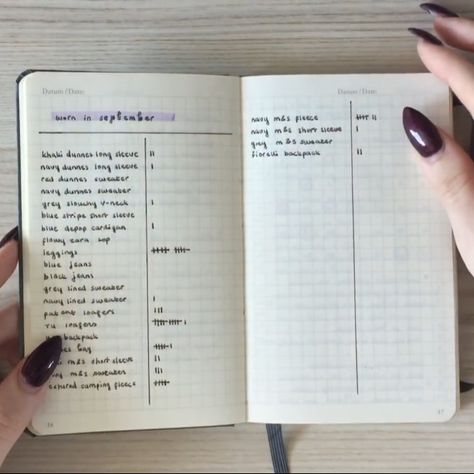 Datum / Date:
worn in september
khaki dunnes long sleeve II
navy dunnes long sleeve I
red dunnes sweater
navy dunnes sweater
grey slouchy v-neck I
blue stripe short sleeve
blue depop cardigan I
flowy zara top
leggings 卌 卌
blue jeans
black jeans
grey lined sweater
navy lined sweater I
patent loafers III
TU loafers 卌 卌 I
backpack
bag 卌 I
m&s short sleeve II
m&s sweater III
camping fleece 卌
16
Datum / Date:
navy m&s fleece 卌 II
navy m&s short sleeve I
grey m&s sweater
fiorelli backpack II
17